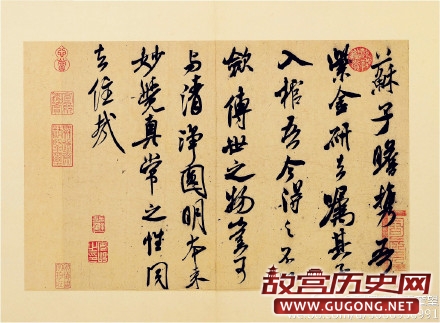 蘇子瞻携吾
紫金研去囑其
入棺吾今得之不
斂傳世之物豈可
与清淨圓明本来
妙覺真常之性同
去住哉
故宫历史网
WWW.GUGONG.NET